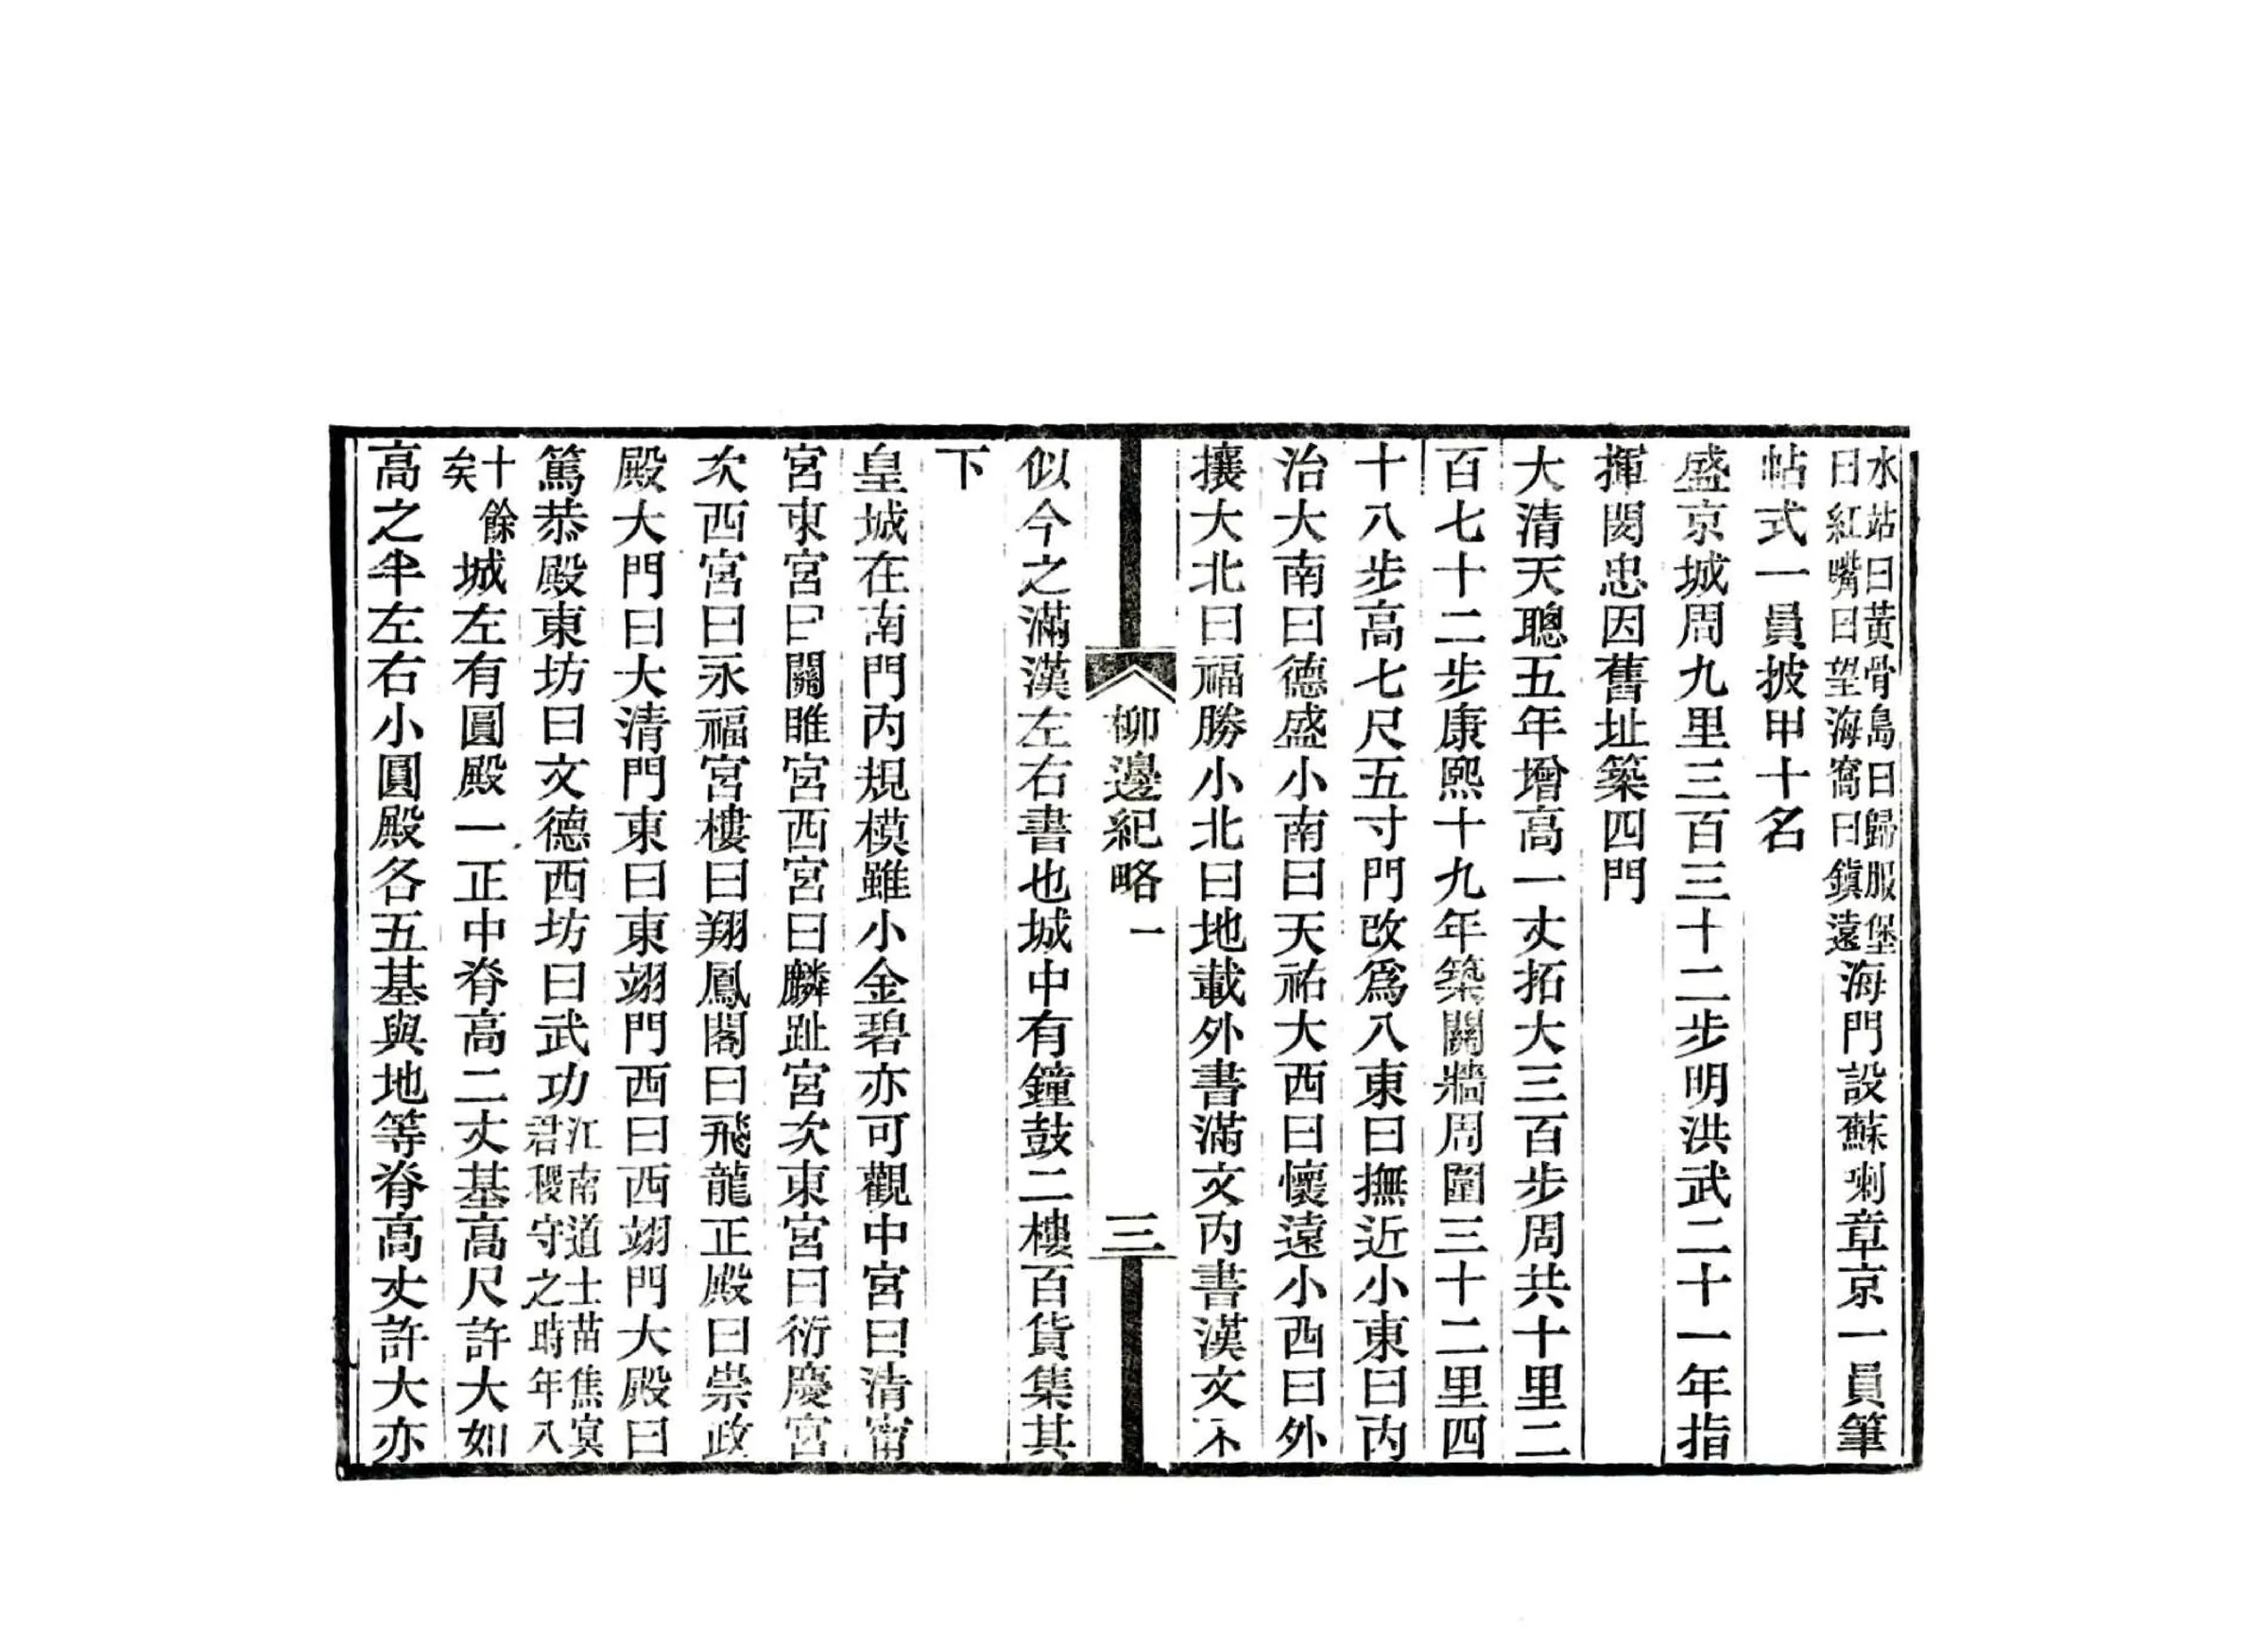 水站曰黃骨島曰歸服堡
曰紅嘴曰望海窩曰鎮遠
海門設蘇喇章京一員筆
帖式一員披甲十名
盛京城周九里三百三十二步明洪武二十一年指
揮閔忠因舊址築四門
大清天聰五年增高一丈拓大三百步周共十里二
百七十二步康熙十九年築關牆周圍三十二里四
十八步高七尺五寸門改為八東曰撫近小東曰內
治大南曰德盛小南曰天祐大西曰懷遠小西曰外
攘大北曰福勝小北曰地載外書滿文內書漢文不
柳邊紀略 一
三
似今之滿漢左右書也城中有鐘鼓二樓百貨集其
下
皇城在南門內規模雖小金碧亦可觀中宮曰清甯
宮東宮曰關睢宮西宮曰麟趾宮次東宮曰衍慶宮
次西宮曰永福宮樓曰翔鳳閣曰飛龍正殿曰崇政
殿大門曰大清門東曰東翊門西曰西翊門大殿曰
篤恭殿東坊曰文德西坊曰武功
江南道士苗焦冥
君稷守之時年八
十餘
矣
城左有圓殿一正中脊高二丈基高尺許大如
高之半左右小圓殿各五基與地等脊高丈許大亦